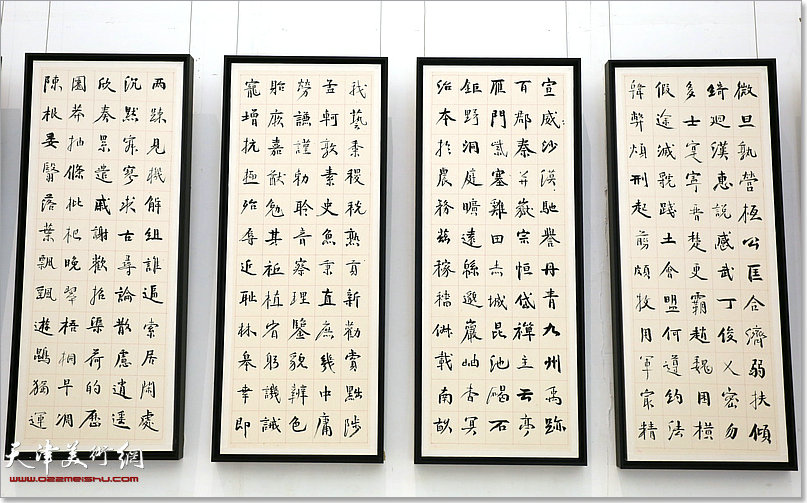 微旦孰營桓公匡合濟弱扶傾
綺迴漢惠說感武丁俊乂密勿
多士寔寧晉楚更霸趙魏困橫
假途滅虢踐土會盟何遵約法
韓弊煩刑起翦頗牧用軍最精
宣威沙漠馳譽丹青九州禹跡
百郡秦并嶽宗恒岱禪主云亭
雁門紫塞雞田赤城昆池碣石
鉅野洞庭曠遠緜邈巖岫杳冥
治本於農務茲稼穡俶載南畝
我藝黍稷稅熟貢新勸賞黜陟
孟軻敦素史魚秉直庶幾中庸
勞謙謹勑聆音察理鑒貌辨色
貽厥嘉猷勉其祗植省躬譏誡
寵增抗極殆辱近恥林皋幸即
兩疎見機解組誰逼索居閑處
沉默寂寥求古尋論散慮逍遙
欣奏累遣戚謝歡招渠荷的歷
園莽抽條枇杷晚翠梧桐早凋
陳根委翳落葉飄颻遊鵾獨運
天津美術網
www.022meishu.com